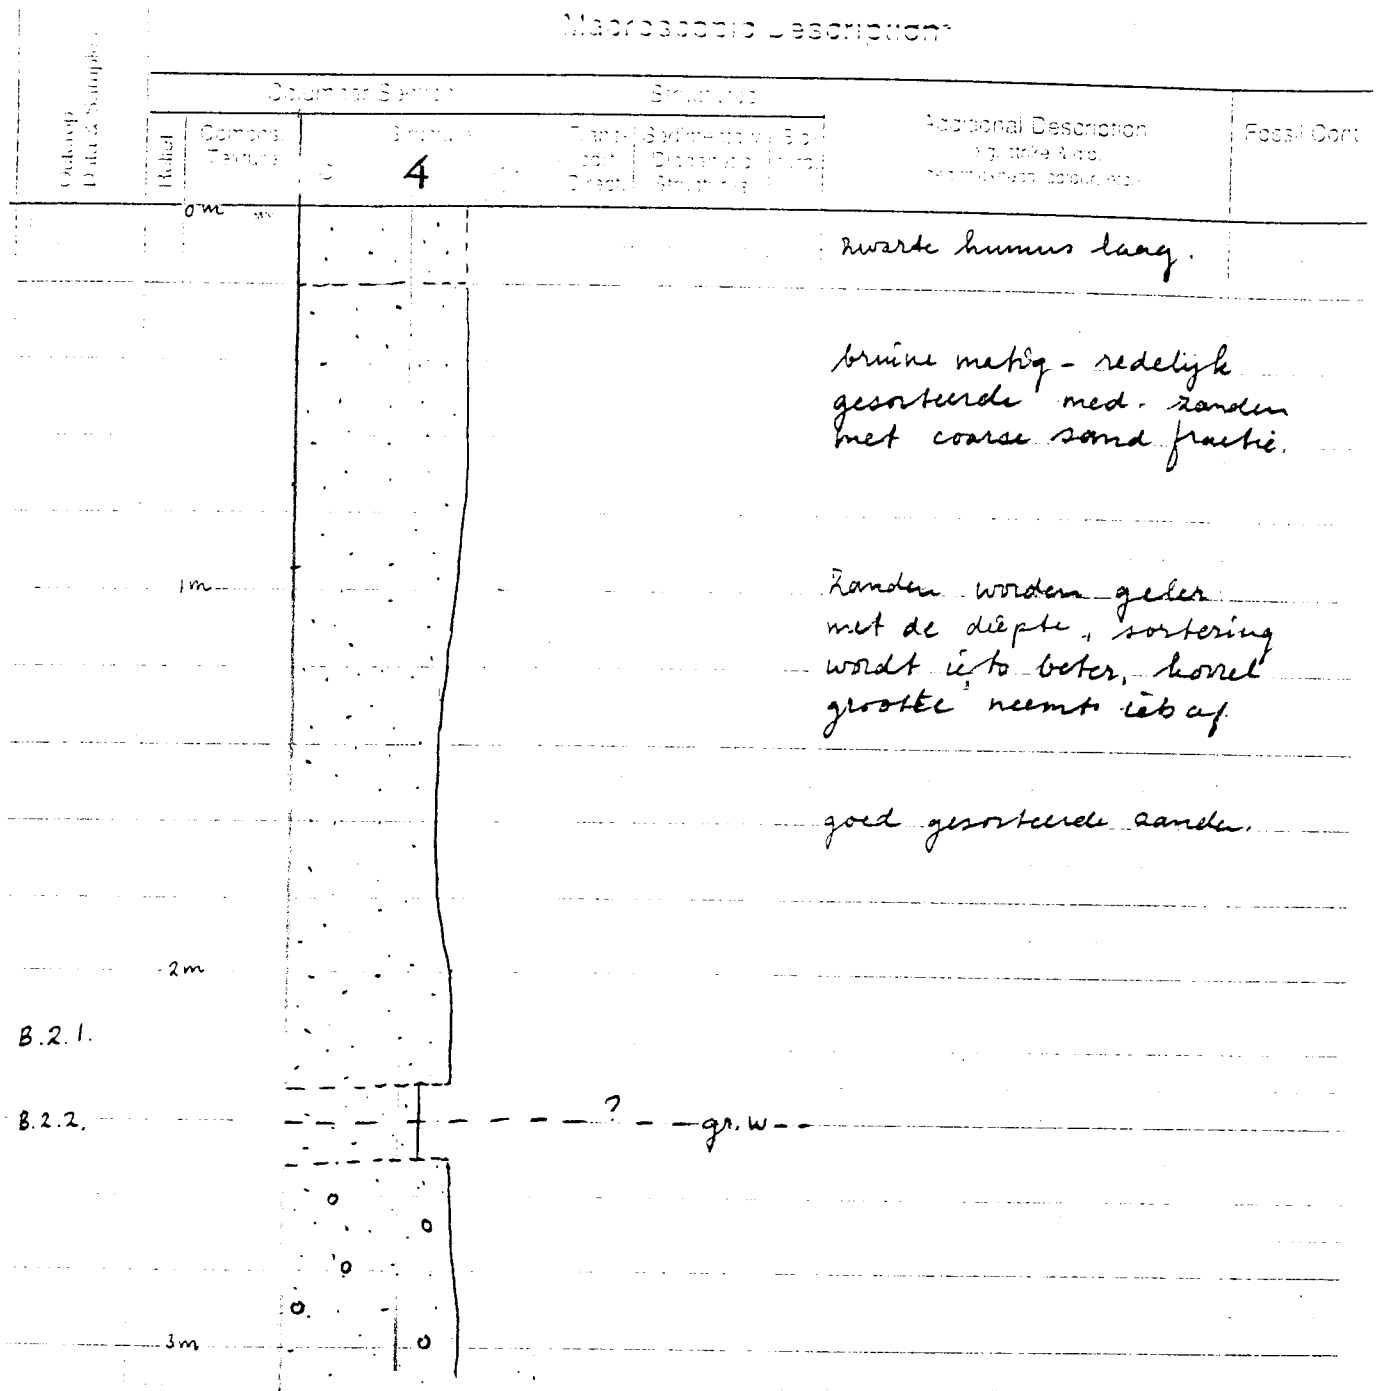 Macroscopic Description
Columnar Section Structures
Relief
Additional Description
Fossil Cont
4
0m
zwarte humus laag.
bruine matig - redelijk
gesorteerde med. zanden
met coarse sand fractie.
1m
Zanden worden geler
met de diepte, sortering
wordt iets beter, korrel
grootte neemt iets af
goed gesorteerde zanden.
2m
B.2.1.
B.2.2. ? gr.w
3m